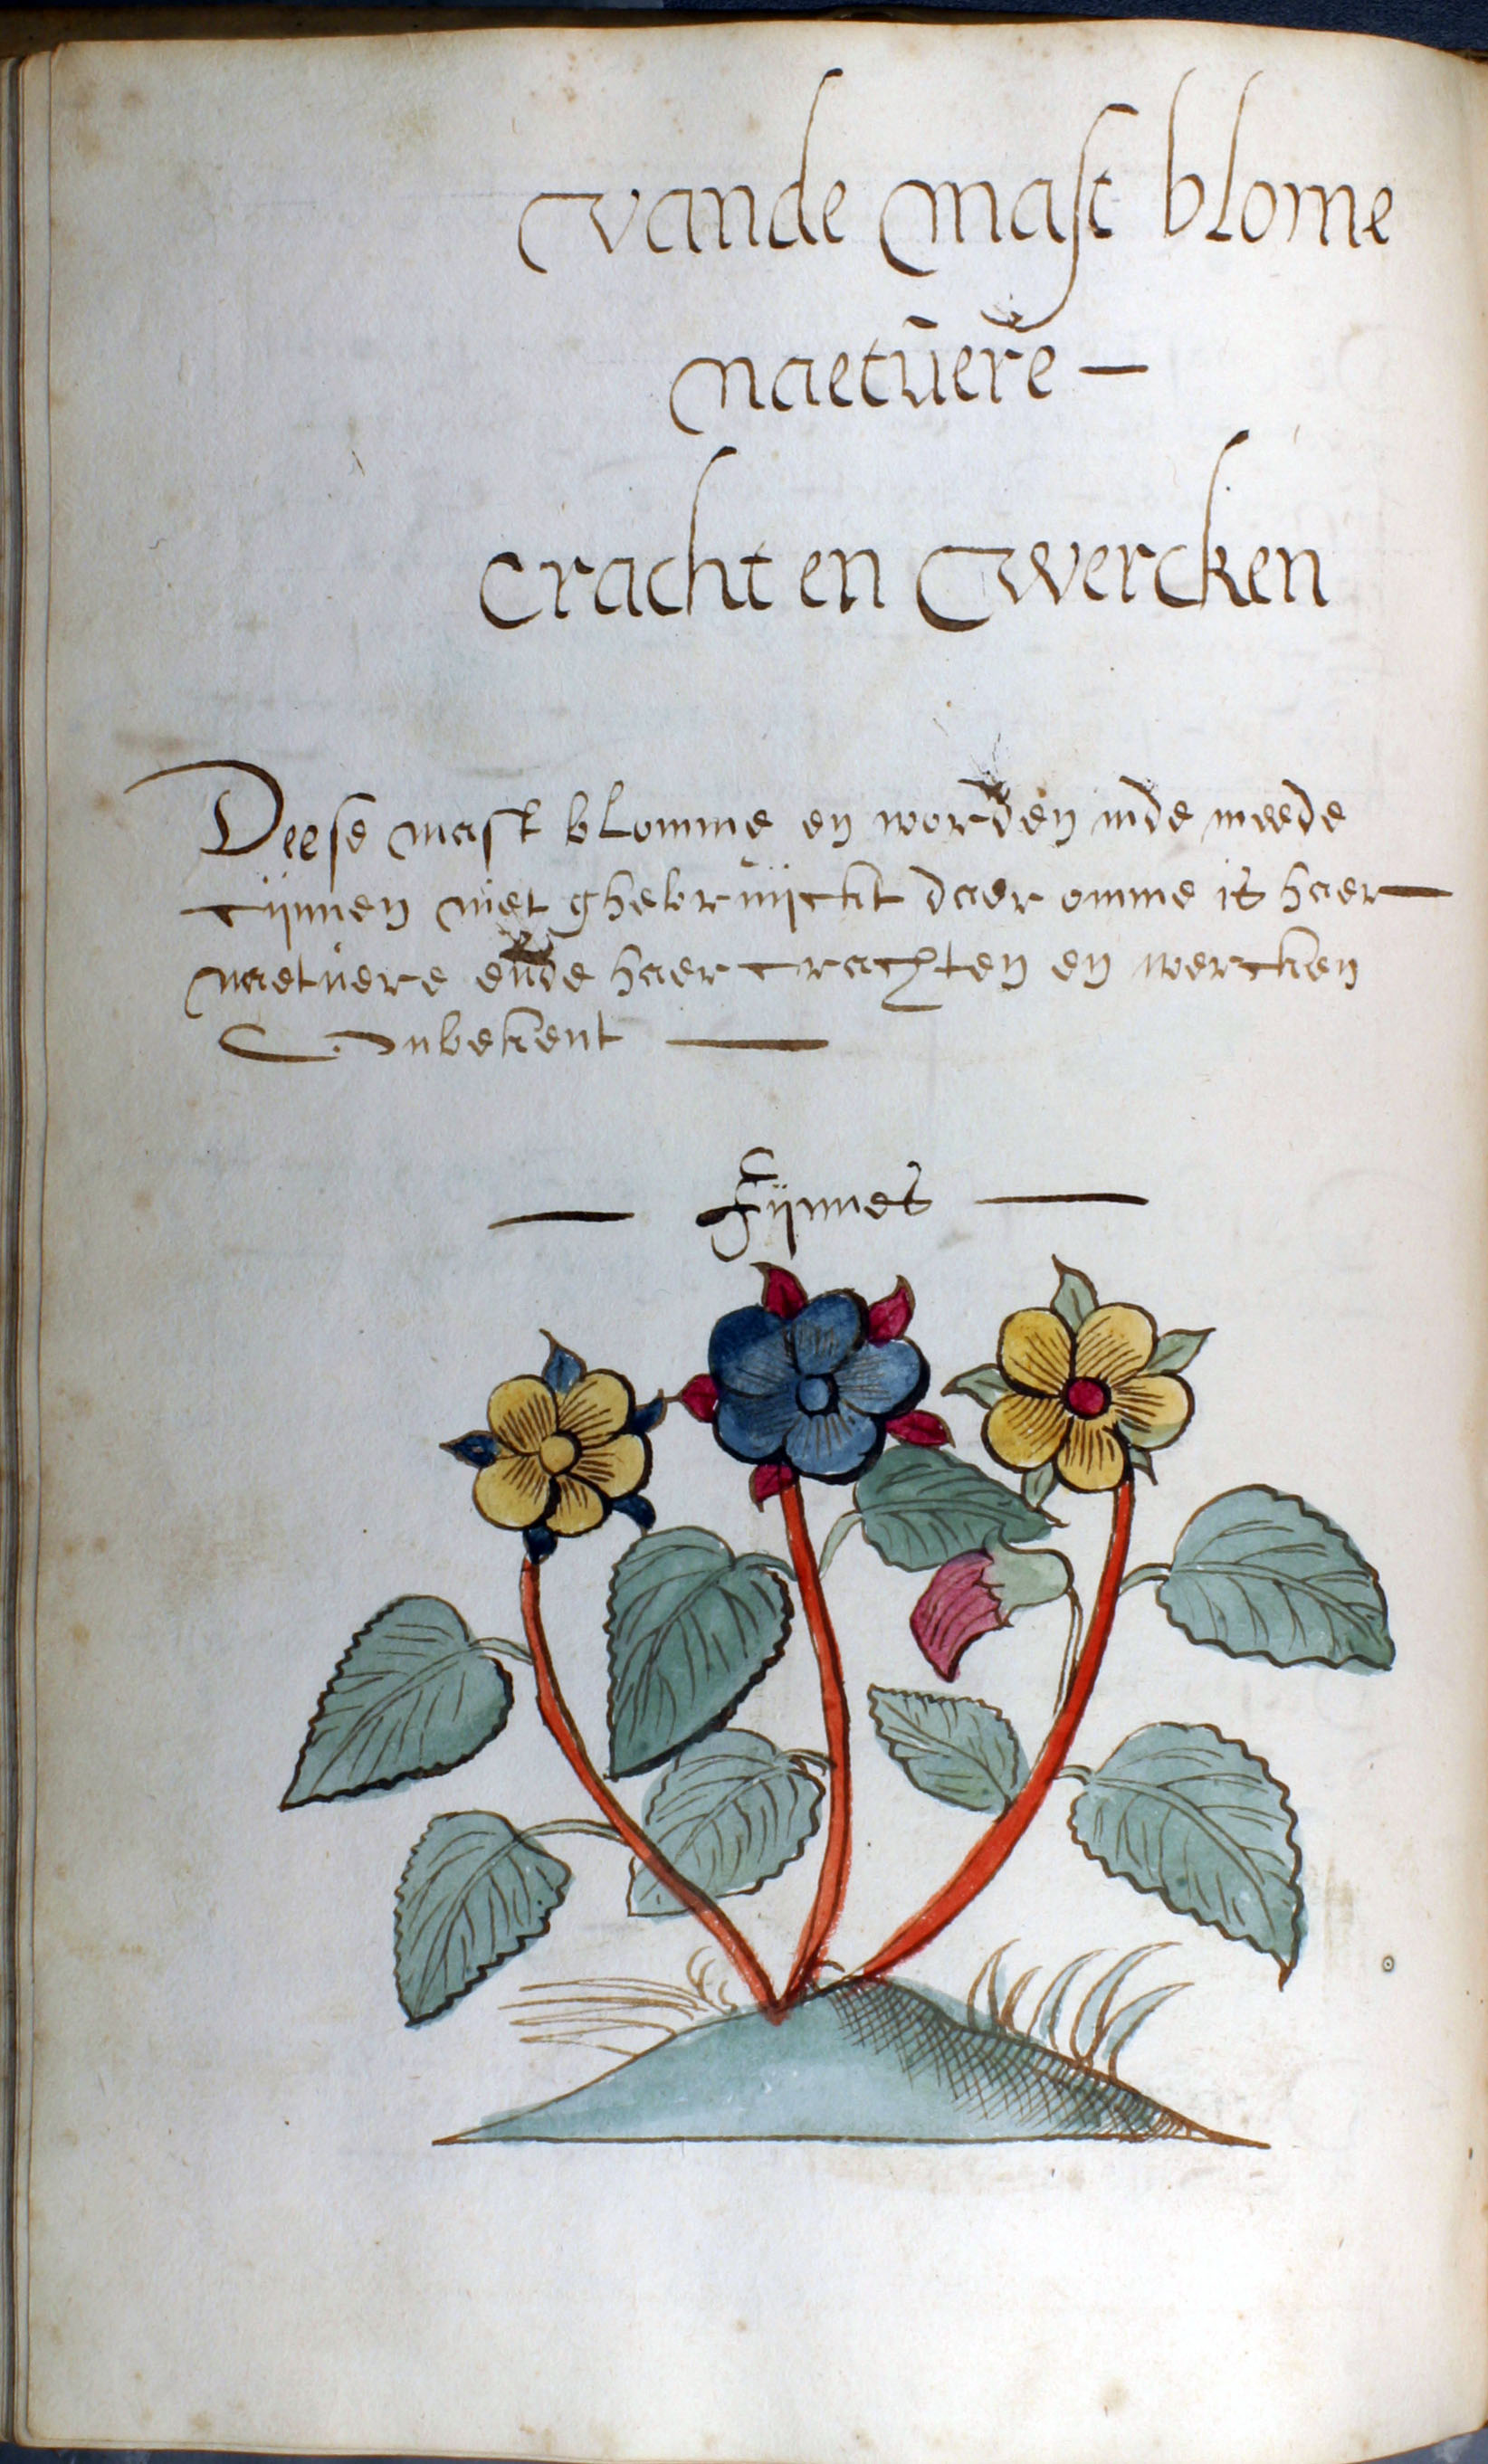 vande mast blome
naetuere —
cracht en wercken
Deese mast blomme en worden inde meede
cijnnen niet ghebruijckt daer omme is haer —
naetuere ende haer crachten en wercken
Onbekent —
— Fijnnes —